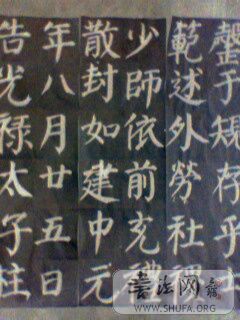 罄于規存乎
範述外勞社稷
少師依前充禮
散封如建中元
年八月廿五日
告光祿太子柱
書法网
WWW.SHUFA.ORG